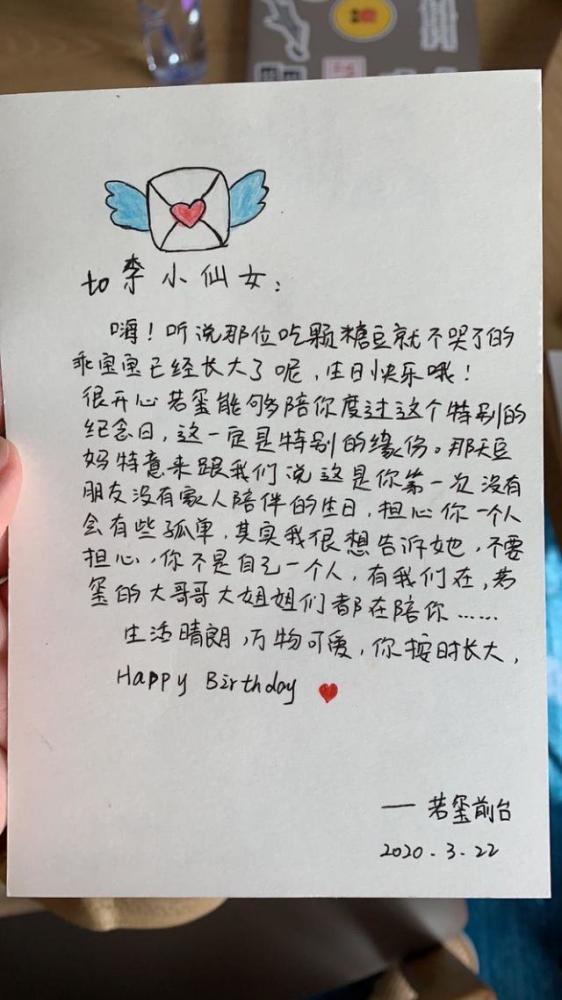 to 李小仙女：
嗨！听说那位吃颗糖豆就不哭了的
乖宝宝已经长大了呢，生日快乐哦！
很开心若玺能够多陪你度过这个特别的
纪念日，这一定是特别的缘份。那天豆
妈特意来跟我们说这是你第一次没有
朋友没有家人陪伴的生日，担心你一个人
会有些孤单，其实我很想告诉她，不要
担心，你不是自己一个人，有我们在，若
玺的大哥哥大姐姐们都在陪你……
生活晴朗，万物可爱，你按时长大，
Happy Birthday
——若玺前台
2020.3.22